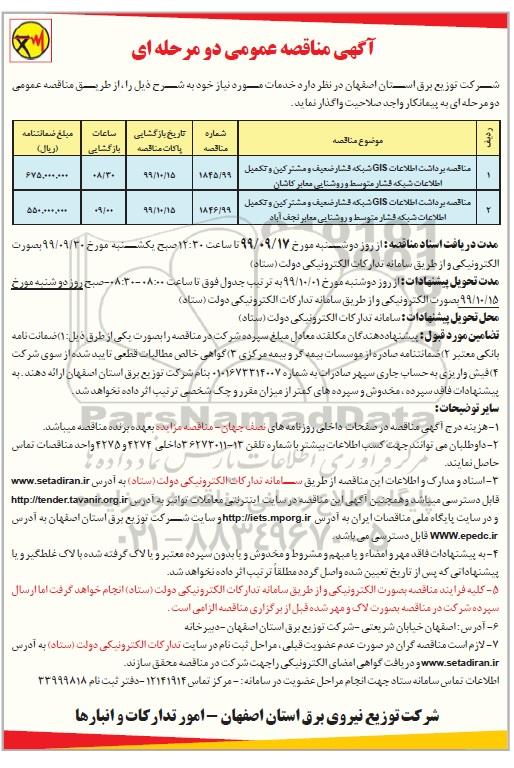 آگهی مناقصه عمومی دو مرحله ای
شرکت توزیع برق استان اصفهان در نظر دارد خدمات مورد نیاز خود به شرح ذیل را، از طریق مناقصه عمومی
دو مرحله ای به پیمانکار واجد صلاحیت واگذار نماید.
ردیف موضوع مناقصه شماره مناقصه تاریخ بازگشایی پاکات مناقصه ساعات بازگشایی مبلغ ضمانتنامه (ریال)
۱ مناقصه برداشت اطلاعات GIS شبکه فشار ضعیف و مشترکین و تکمیل اطلاعات شبکه فشار متوسط و روشنایی معابر کاشان ۱۸۴۵/۹۹ ۹۹/۱۰/۱۵ ۰۸/۳۰ ۶۷۵,۰۰۰,۰۰۰
۲ مناقصه برداشت اطلاعات GIS شبکه فشار ضعیف و مشترکین و تکمیل اطلاعات شبکه فشار متوسط و روشنایی معابر نجف آباد ۱۸۴۶/۹۹ ۹۹/۱۰/۱۵ ۰۹/۰۰ ۵۵۰,۰۰۰,۰۰۰
مدت دریافت اسناد مناقصه: از روز دوشنبه مورخ ۹۹/۰۹/۱۷ تا ساعت ۱۲:۳۰ صبح یکشنبه مورخ ۹۹/۰۹/۳۰ بصورت
الکترونیکی و از طریق سامانه تدارکات الکترونیکی دولت (ستاد)
مدت تحویل پیشنهادات: از روز دوشنبه مورخ ۹۹/۱۰/۰۱ به ترتیب جدول فوق تا ساعت ۰۸:۰۰-۰۸:۳۰ صبح روز دوشنبه مورخ
۹۹/۱۰/۱۵ بصورت الکترونیکی و از طریق سامانه تدارکات الکترونیکی دولت (ستاد)
محل تحویل پیشنهادات: سامانه تدارکات الکترونیکی دولت (ستاد)
تضامین مورد قبول: پیشنهاددهندگان مکلفند معادل مبلغ سپرده شرکت در مناقصه را بصورت یکی از طرق ذیل: ۱) ضمانت نامه
بانکی معتبر ۲) ضمانتنامه صادره از موسسات بیمه گر و بیمه مرکزی ۳) گواهی خالص مطالبات قطعی تایید شده از سوی شرکت
۴) فیش واریزی به حساب جاری سپهر صادرات به شماره ۰۱۰۱۶۷۳۳۱۴۰۰۷ بنام شرکت توزیع برق استان اصفهان ارائه دهند. به
پیشنهادات فاقد سپرده، مخدوش و سپرده های کمتر از میزان مقرر و چک شخصی ترتیب اثر داده نخواهد شد.
سایر توضیحات:
۱- هزینه درج آگهی مناقصه در صفحات داخلی روزنامه های نصف جهان - مناقصه مزایده بعهده برنده مناقصه میباشد.
۲- داوطلبان می توانند جهت کسب اطلاعات بیشتر با شماره تلفن ۱۳-۳۶۲۷۳۰۱۱ داخلی ۴۲۷۴ و ۴۲۷۵ واحد مناقصات تماس
حاصل نمایند.
۳- اسناد و مدارک و اطلاعات این مناقصه از طریق سامانه تدارکات الکترونیکی دولت (ستاد) به آدرس www.setadiran.ir
قابل دسترسی میباشد وهمچنین آگهی این مناقصه در سایت اینترنتی معاملات توانیر به آدرس http://tender.tavanir.org.ir
و در سایت پایگاه ملی مناقصات ایران به آدرس http://iets.mporg.ir و سایت شرکت توزیع برق استان اصفهان به آدرس
www.epedc.ir قابل دسترسی می باشد.
۴- به پیشنهادات فاقد مهر و امضاء و یا مبهم و مشروط و مخدوش و یا بدون سپرده معتبر و یا لاک گرفته شده با لاک غلطگیر و یا
پیشنهاداتی که پس از تاریخ تعیین شده واصل گردد مطلقاً ترتیب اثر داده نخواهد شد.
۵- کلیه فرایند مناقصه بصورت الکترونیکی و از طریق سامانه تدارکات الکترونیکی دولت (ستاد) انجام خواهد گرفت اما ارسال
سپرده شرکت در مناقصه بصورت لاک و مهر شده قبل از برگزاری مناقصه الزامی است.
۶- آدرس: اصفهان خیابان شریعتی - شرکت توزیع برق استان اصفهان - دبیرخانه
۷- لازم است مناقصه گران در صورت عدم عضویت قبلی، مراحل ثبت نام در سایت تدارکات الکترونیکی دولت (ستاد) به آدرس
www.setadiran.ir و دریافت گواهی امضای الکترونیکی را جهت شرکت در مناقصه محقق سازند.
اطلاعات تماس سامانه ستاد جهت انجام مراحل عضویت در سامانه: - مرکز تماس ۱۲۱۴۱۹۱۴- دفتر ثبت نام ۳۳۹۹۹۸۱۸
شرکت توزیع نیروی برق استان اصفهان - امور تدارکات و انبارها
ParsNamadData
۰۲۱-۸۸۳۴۹۶۷۰